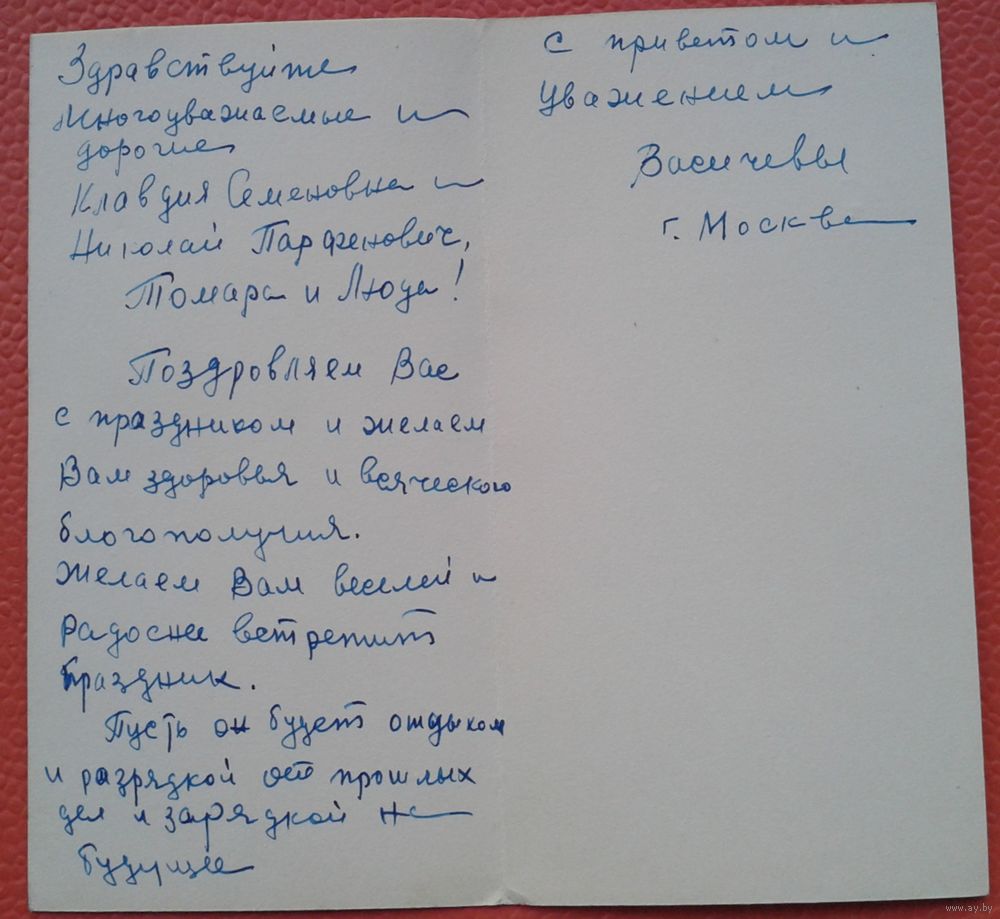 Здравствуйте
многоуважаемые и
дорогие
Клавдия Семеновна и
Николай Парфенович,
Томара и Люда!
Поздровляем Вас
с праздником и желаем
Вам здоровья и всяческого
благополучия.
Желаем Вам веселей и
радосне встретить
праздник.
Пусть он будет отдыхом
и разрядкой от прошлых
дел и зарядкой на
будущее
с приветом и
уважением
Васичевы
г. Москва
www.ay.by